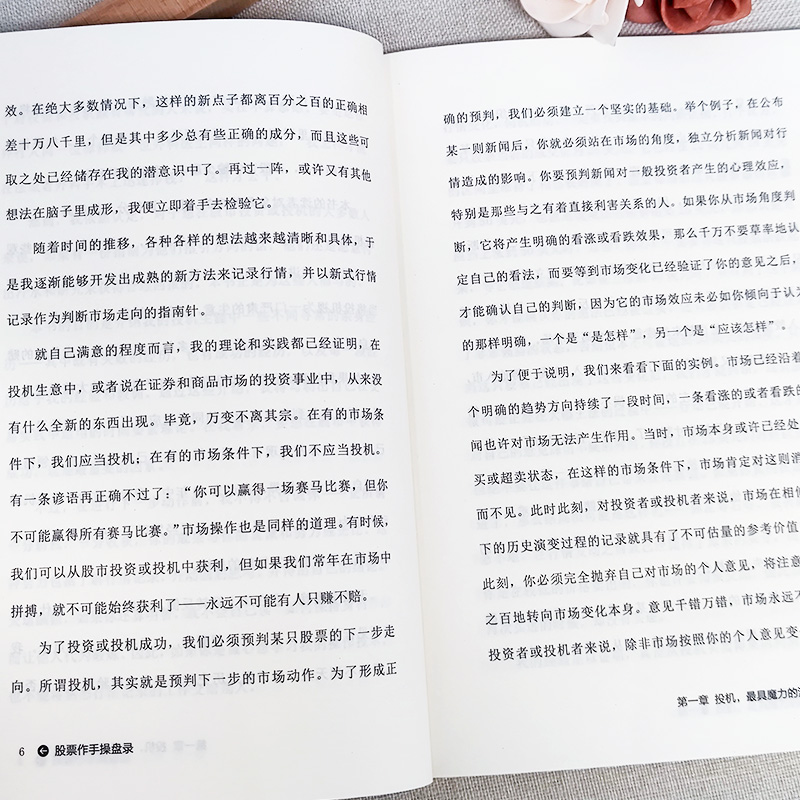 效。在绝大多数情况下，这样的新点子都离百分之百的正确相
差十万八千里，但是其中多少总有些正确的成分，而且这些可
取之处已经储存在我的潜意识中了。再过一阵，或许又有其他
想法在脑子里成形，我便立即着手去检验它。
随着时间的推移，各种各样的想法越来越清晰和具体，于
是我逐渐能够开发出成熟的新方法来记录行情，并以新式行情
记录作为判断市场走向的指南针。
就自己满意的程度而言，我的理论和实践都已经证明，在
投机生意中，或者说在证券和商品市场的投资事业中，从来没
有什么全新的东西出现。毕竟，万变不离其宗。在有的市场条
件下，我们应当投机；在有的市场条件下，我们不应当投机。
有一条谚语再正确不过了：“你可以赢得一场赛马比赛，但你
不可能赢得所有赛马比赛。”市场操作也是同样的道理。有时候，
我们可以从股市投资或投机中获利，但如果我们常年在市场中
拼搏，就不可能始终获利了——永远不可能有人只赚不赔。
为了投资或投机成功，我们必须预判某只股票的下一步走
向。所谓投机，其实就是预判下一步的市场动作。为了形成正
6 股票作手操盘录
确的预判，我们必须建立一个坚实的基础。举个例子，在公布
某一则新闻后，你就必须站在市场的角度，独立分析新闻对行
情造成的影响。你要预判新闻对一般投资者产生的心理效应，
特别是那些与之有着直接利害关系的人。如果你从市场角度判
断，它将产生明确的看涨或看跌效果，那么千万不要草率地认
定自己的看法，而要等到市场变化已经验证了你的意见之后，
才能确认自己的判断，因为它的市场效应未必如你倾向于认为
的那样明确，一个是“是怎样”，另一个是“应该怎样”。
为了便于说明，我们来看看下面的实例。市场已经沿着
个明确的趋势方向持续了一段时间，一条看涨的或者看跌的
闻也许对市场无法产生作用。当时，市场本身或许已经处
买或超卖状态，在这样的市场条件下，市场肯定对这则消
而不见。此时此刻，对投资者或投机者来说，市场在相似
下的历史演变过程的记录就具有了不可估量的参考价值
此刻，你必须完全抛弃自己对市场的个人意见，将注意
之百地转向市场变化本身。意见千错万错，市场永远不
投资者或投机者来说，除非市场按照你的个人意见变
第一章 投机，最具魔力的